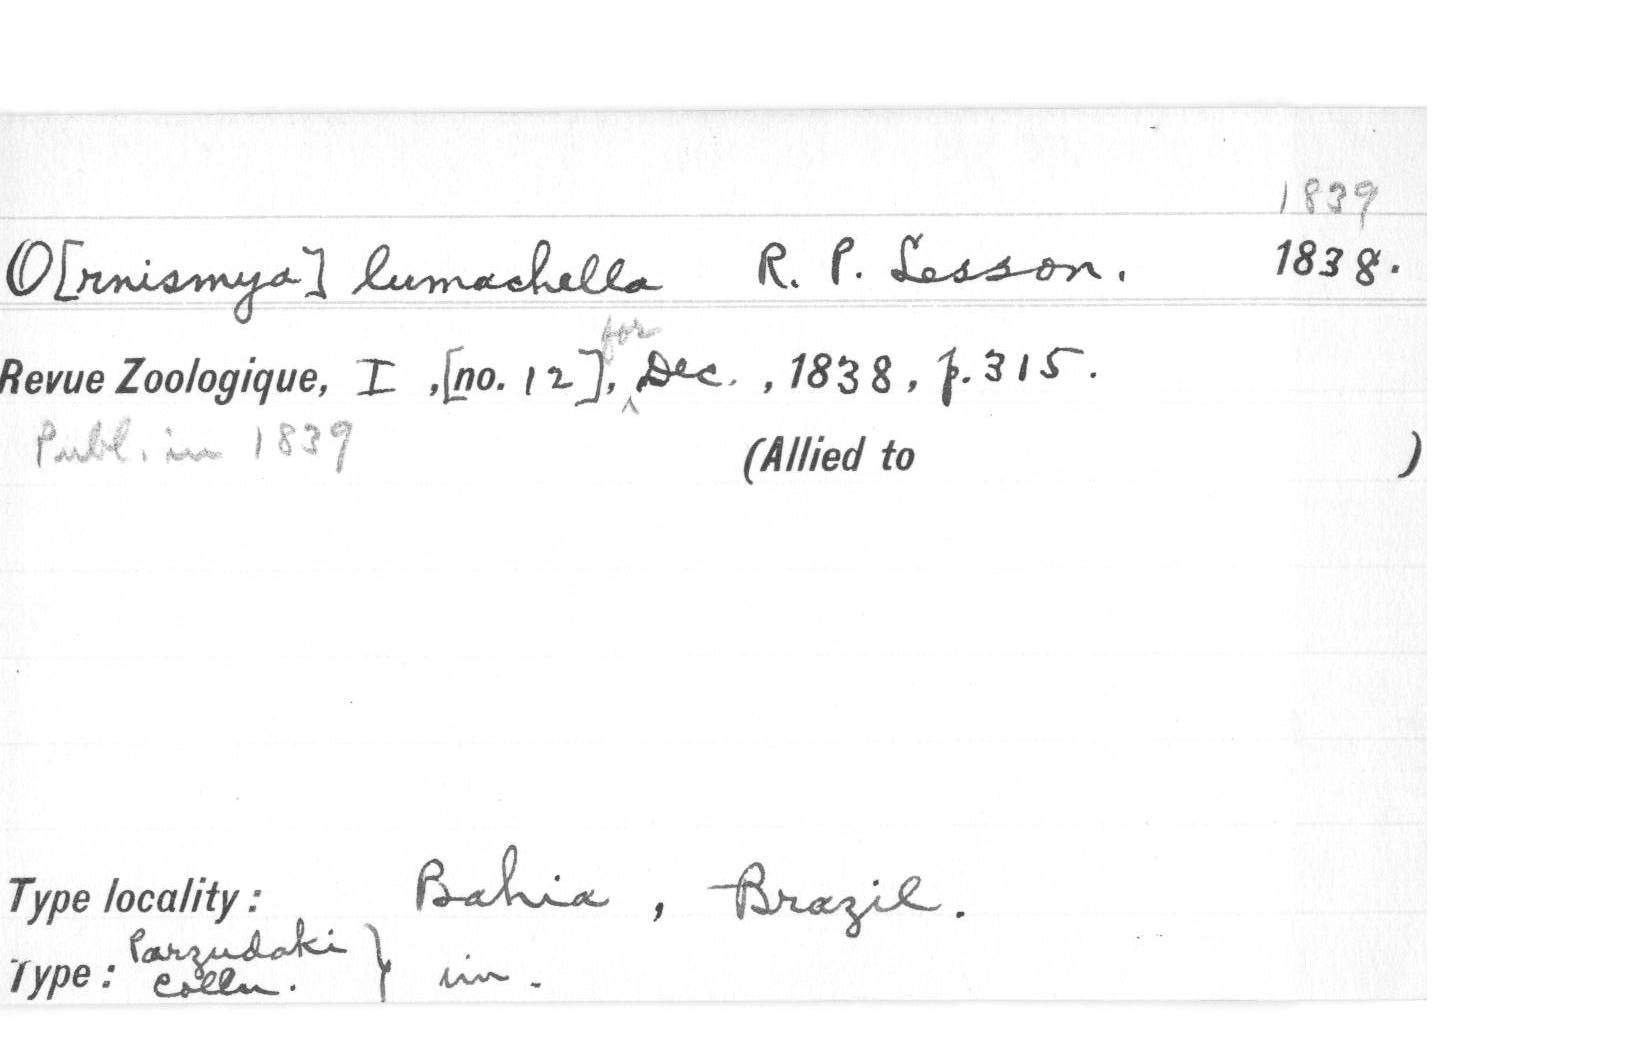 1839
O[rnismya] lumachella R. P. Lesson. 1838.
for
Revue Zoologique, I ,[no. 12], Dec. , 1838, p. 315.
Publ. in 1839
(Allied to )
Type locality : Bahia , Brazil.
Type : Parzudaki Colln. }